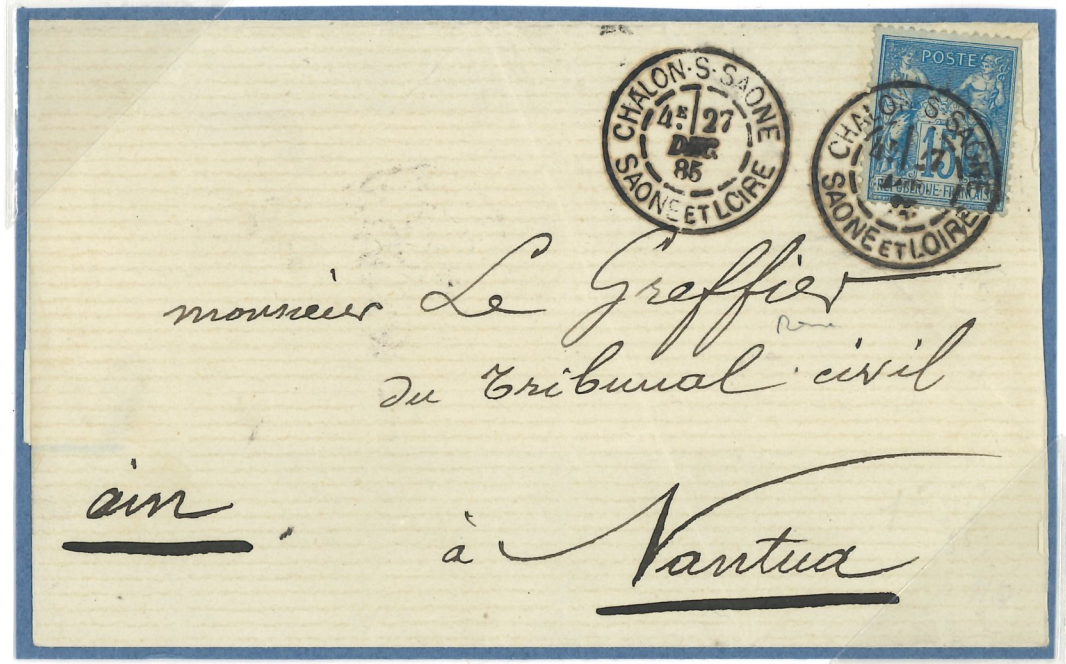 CHALON-S-SAONE
4E 27
DEC.
85
SAONE ET LOIRE
POSTE
15
REPUBLIQUE FRANCAISE
CHALON-S-SAONE
SAONE ET LOIRE
monsieur Le Greffier
du Tribunal civil
ain
à Nantua